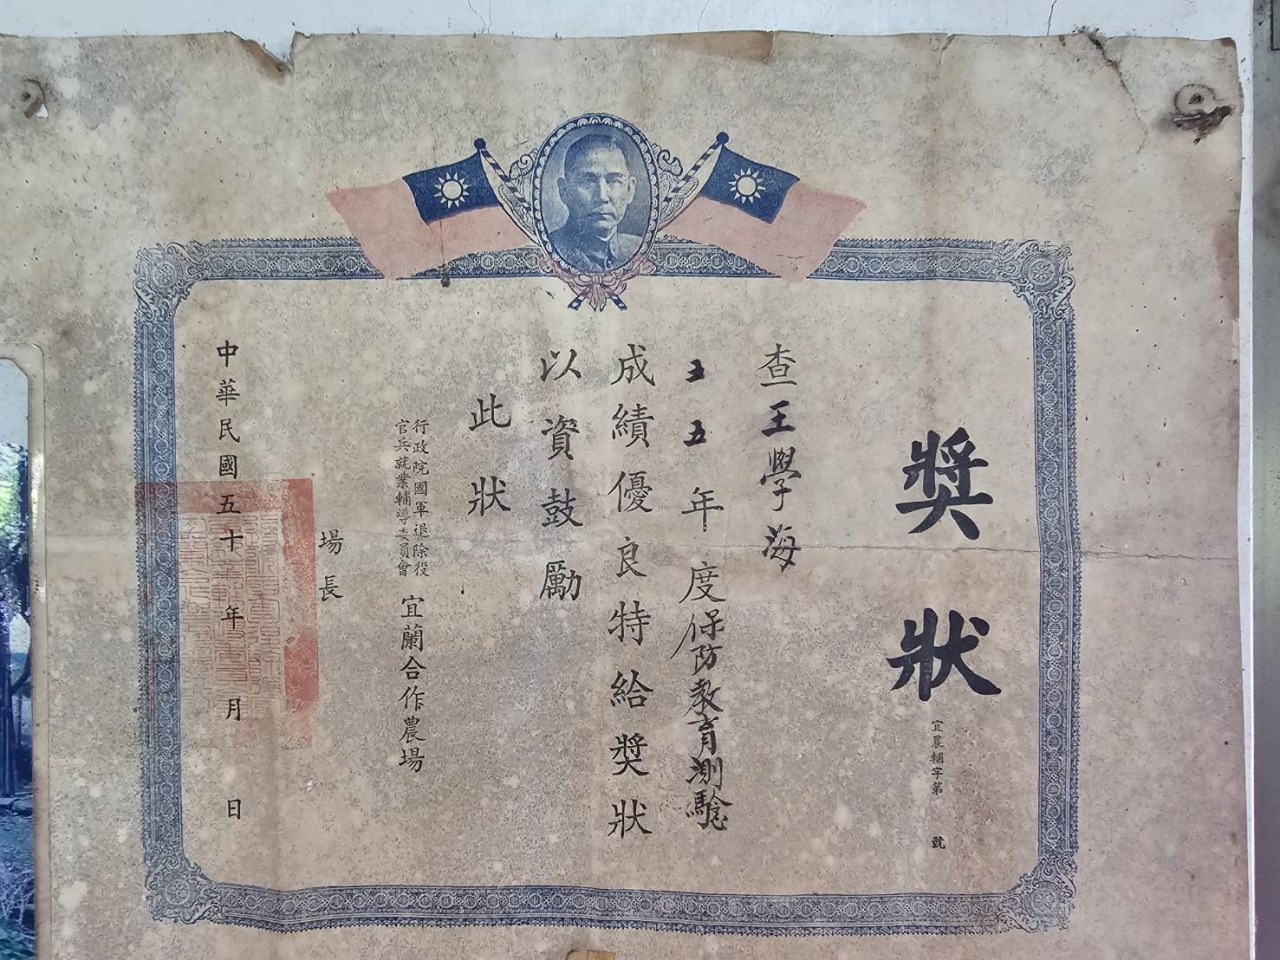 獎狀
宜農輔字第 號
查王學海
五五年度保防教育測驗
成績優良特給獎狀
以資鼓勵
此狀
行政院國軍退除役
官兵就業輔導委員會
宜蘭合作農場
場長
中華民國五十年 月 日